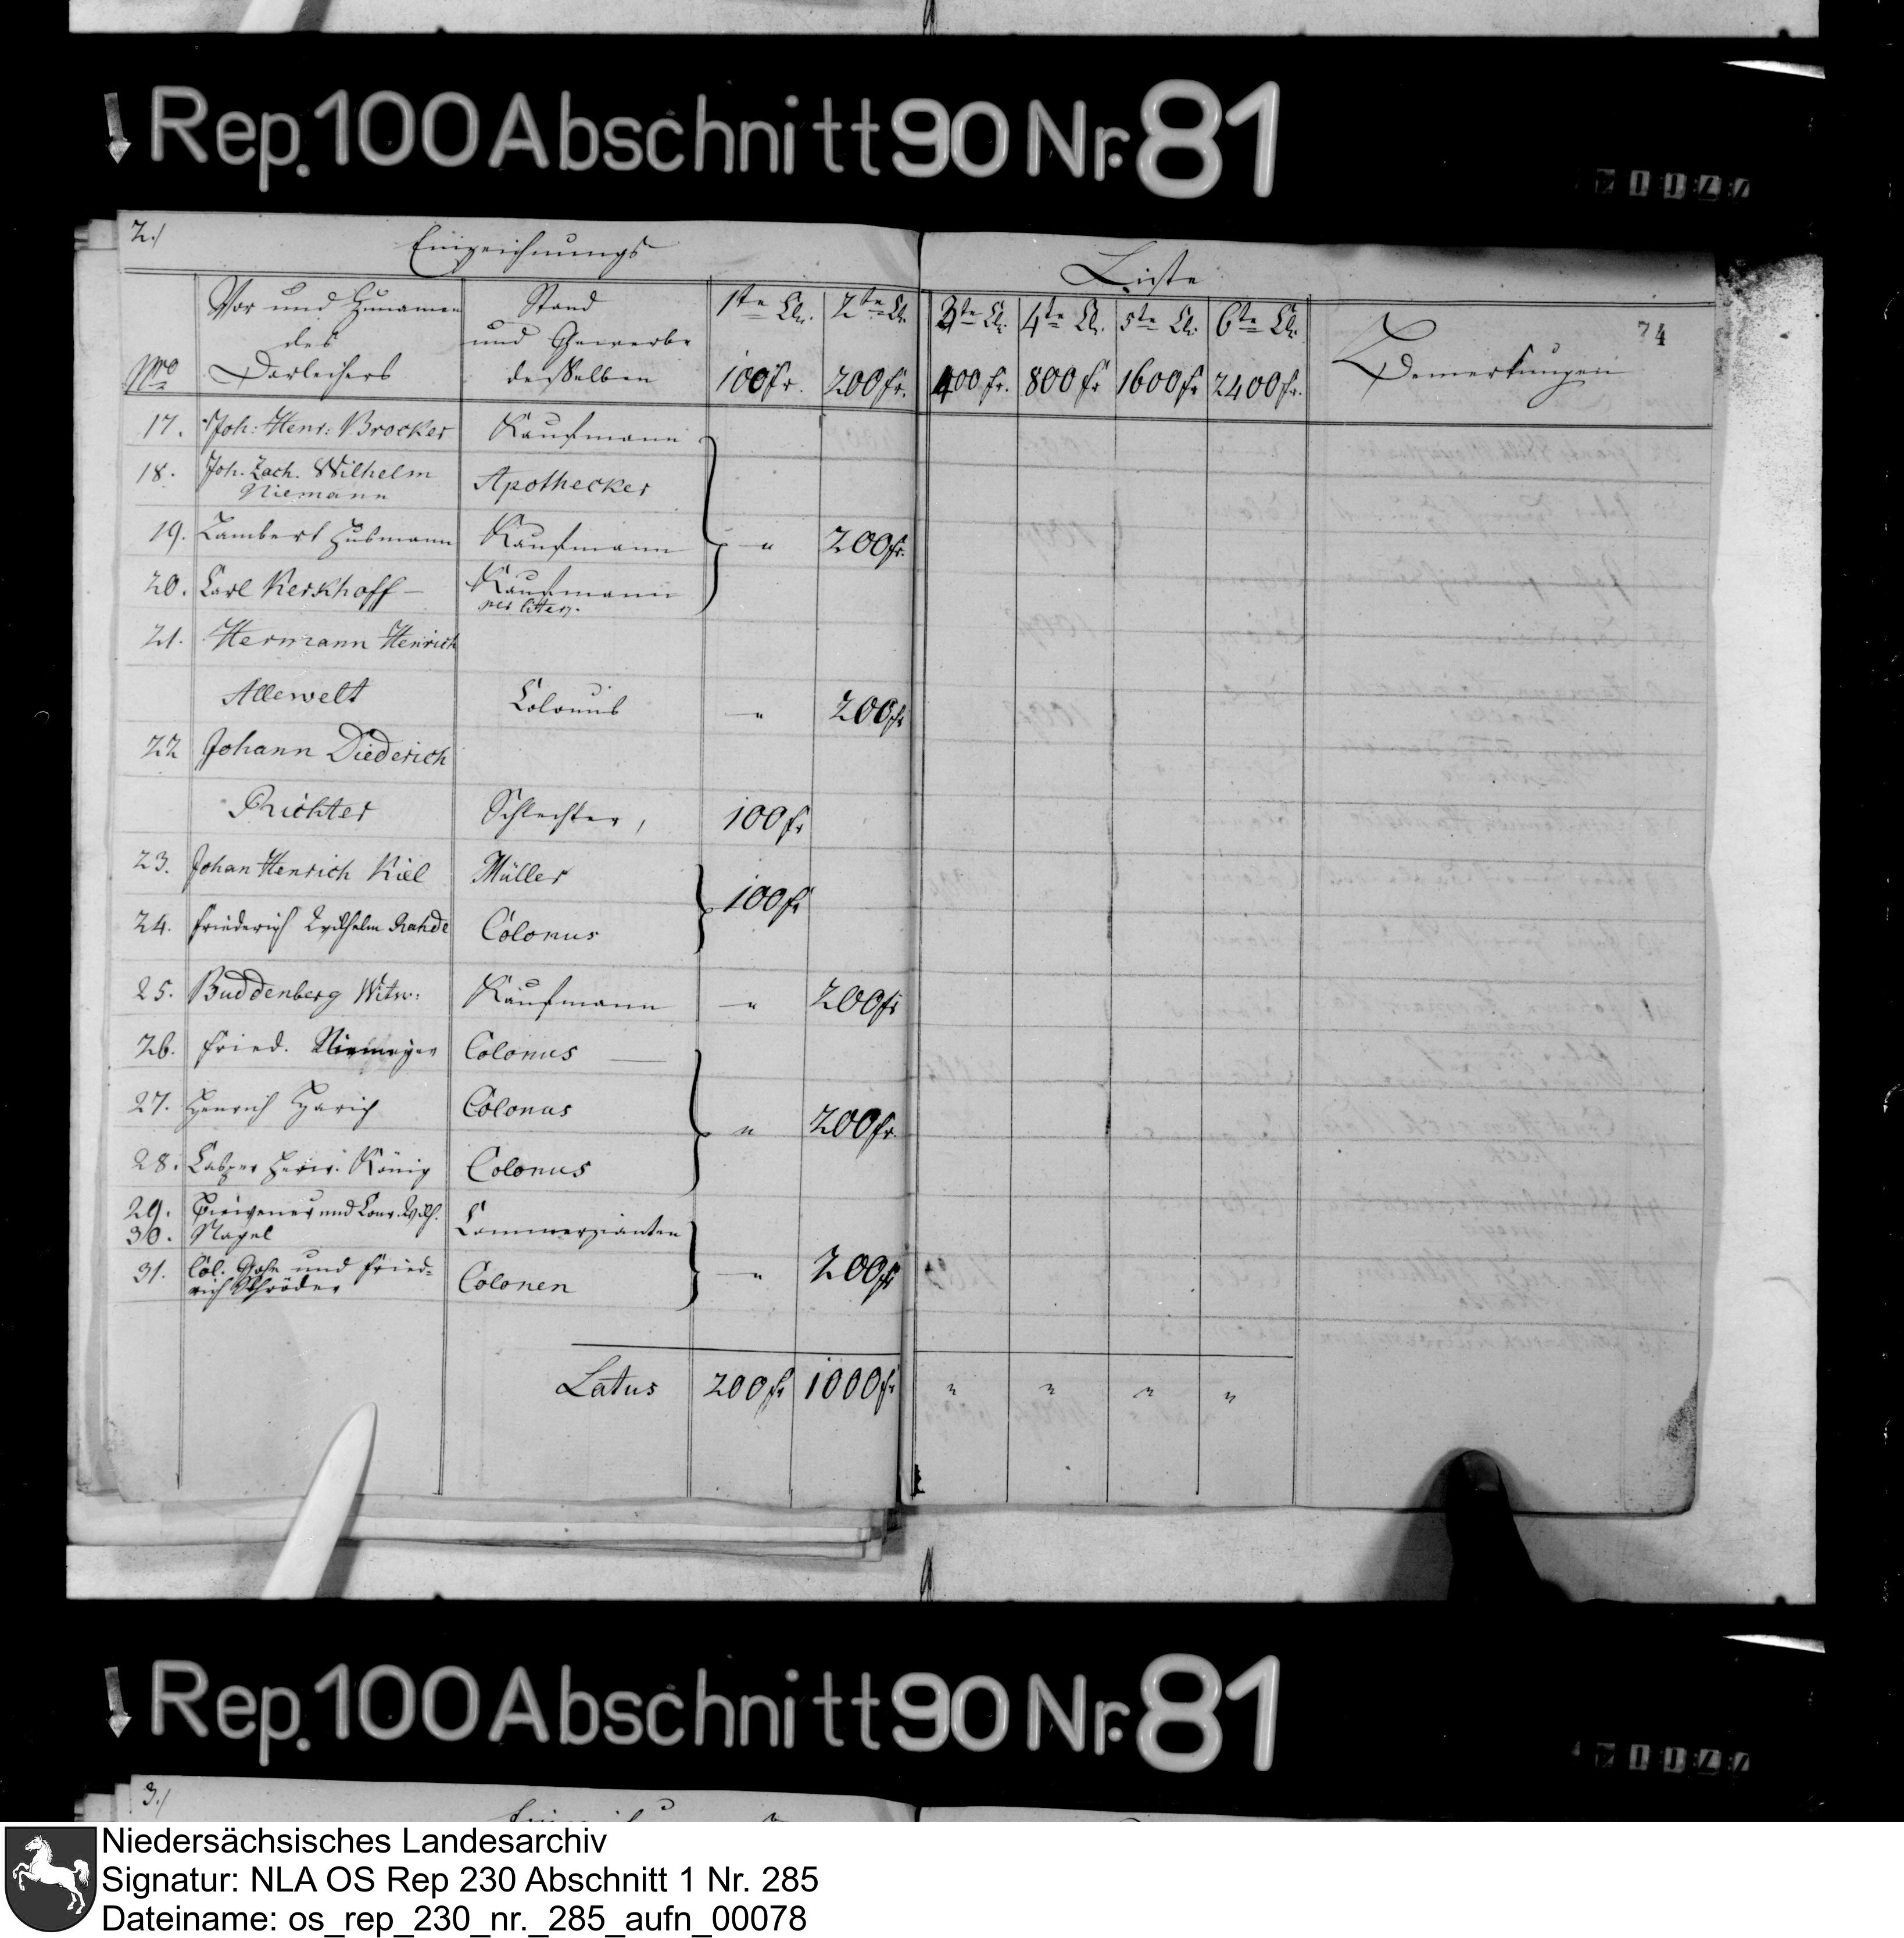 Rep. 100 Abschnitt 90 Nr. 81
2./ Einzeichnungs Liste
74
No
Vor und Zunamen
des
Darleihers
Stand
und Gewerbe
desselben
1te Cl. 100 fr.
2te Cl. 200 fr.
3te Cl. 400 fr.
4te Cl. 800 fr
5te Cl. 1600 fr
6te Cl. 2400 fr.
Bemerkungen
17. Joh: Henr: Brocker Kaufmann
18. Joh. Zach. Wilhelm
Niemann Apothecker
19. Lambert Husmann Kaufmann " 200 fr.
20. Carl Kerkhoff – Kaufmann
21. Hermann Henrich
Allewelt Colonus " 200 fr
22 Johann Diederich
Richter Schlechter, 100 fr
23. Johan Henrich Kiel Müller
100 fr
24. Friederich Wilhelm Rahde Colonus
25. Buddenberg Witw: Kaufmann " 200 fr
26. Fried. Niemeyer Colonus —
27. Henrich Harig Colonus " 200 fr.
28. Casper Henr. König Colonus
29. und Conr. Wilh.
30. Nagel Commerzianten
31. Col. und Fried=
rich Schröder Colonen " 200 fr
Latus 200 fr 1000 fr " " " "
Rep. 100 Abschnitt 90 Nr. 81
3./
Niedersächsisches Landesarchiv
Signatur: NLA OS Rep 230 Abschnitt 1 Nr. 285
Dateiname: os_rep_230_nr._285_aufn_00078